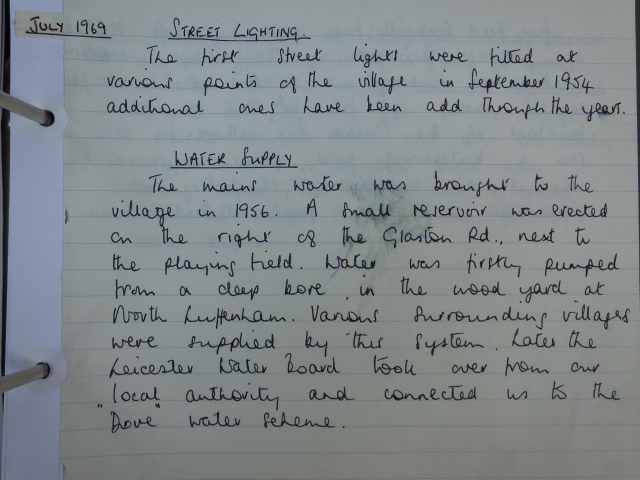 JULY 1969 STREET LIGHTING.
The first street lights were fitted at
various points of the village in September 1954
additional ones have been add through the years.
WATER SUPPLY
The mains water was brought to the
village in 1956. A small reservoir was erected
on the right of the Glaston Rd., next to
the playing field. Water was firstly pumped
from a deep bore in the wood yard at
North Luffenham. Various surrounding villages
were supplied by this system. Later the
Leicester Water Board took over from our
local authority and connected us to the
"Dove" water scheme.